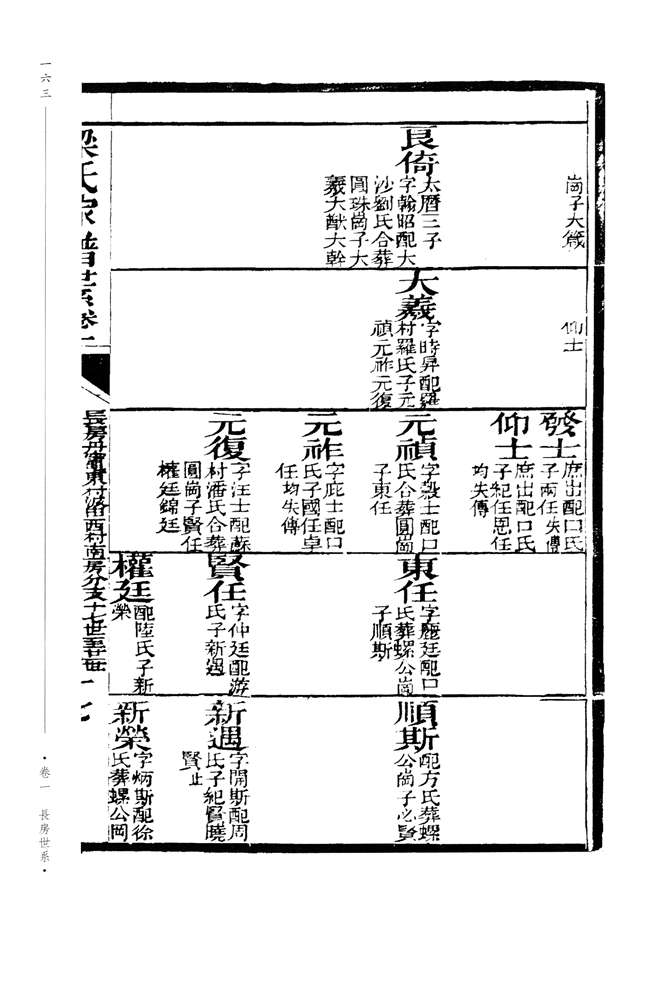 崗子大箴
良倚
太曆三子
字翰昭配大
沙劉氏合葬
圓珠崗子大
羲大猷大幹
仰士
大羲
字時昇配羅
村羅氏子元
禎元祚元復
發士
庶出配口氏
子兩任失傳
仰士
庶出配口氏
子紀任恩任
均失傳
元禎
字穀士配口
氏合葬圓崗
子東任
元祚
字庇士配口
氏子國任卓
任均失傳
元復
字汪士配蘇
村潘氏合葬
圓崗子賢任
權廷錦廷
東任
字麗廷配口
氏葬螺公崗
子順斯
賢任
字仲廷配游
氏子新遇
權廷
配陸氏子新
榮
順斯
配方氏葬螺
公崗子必賢
新遇
字開斯配周
氏子紀賢曉
賢止
新榮
字炳斯配徐
氏葬螺公岡
梁氏家譜世系卷一
長房丹
東村
西村南房分支十七世至廿世
十七
一六三
·卷一 長房世系·